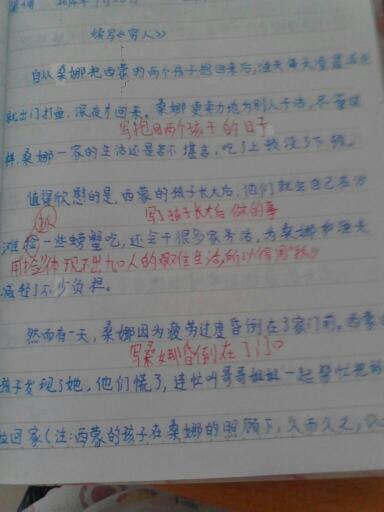 续写《穷人》
自从桑娜把西蒙的两个孩子抱回来后,渔夫每天凌晨
就出门打鱼,深夜才回来。桑娜更卖力地为别人干活,尽管这
写抱回两个孩子的日子
样,桑娜一家的生活还是苦不堪言,吃了上顿没了下顿。
值得欣慰的是,西蒙的孩子长大后,他们就会自己在沙
抓
写了孩子长大后做的事
滩捡一些螃蟹吃,还会干很多家务活,为桑娜和渔夫
用"捡"体现不出
人的
生活,所以得用"抓"
减轻了不少负担。
然而有一天,桑娜因为疲劳过度昏倒在了家门前。西蒙
写桑娜昏倒在了门口
孩子发现了她,他们慌了,连忙叫哥哥姐姐一起帮忙把
拉回家(注:西蒙的孩子在桑娜的照顾下,久而久之,